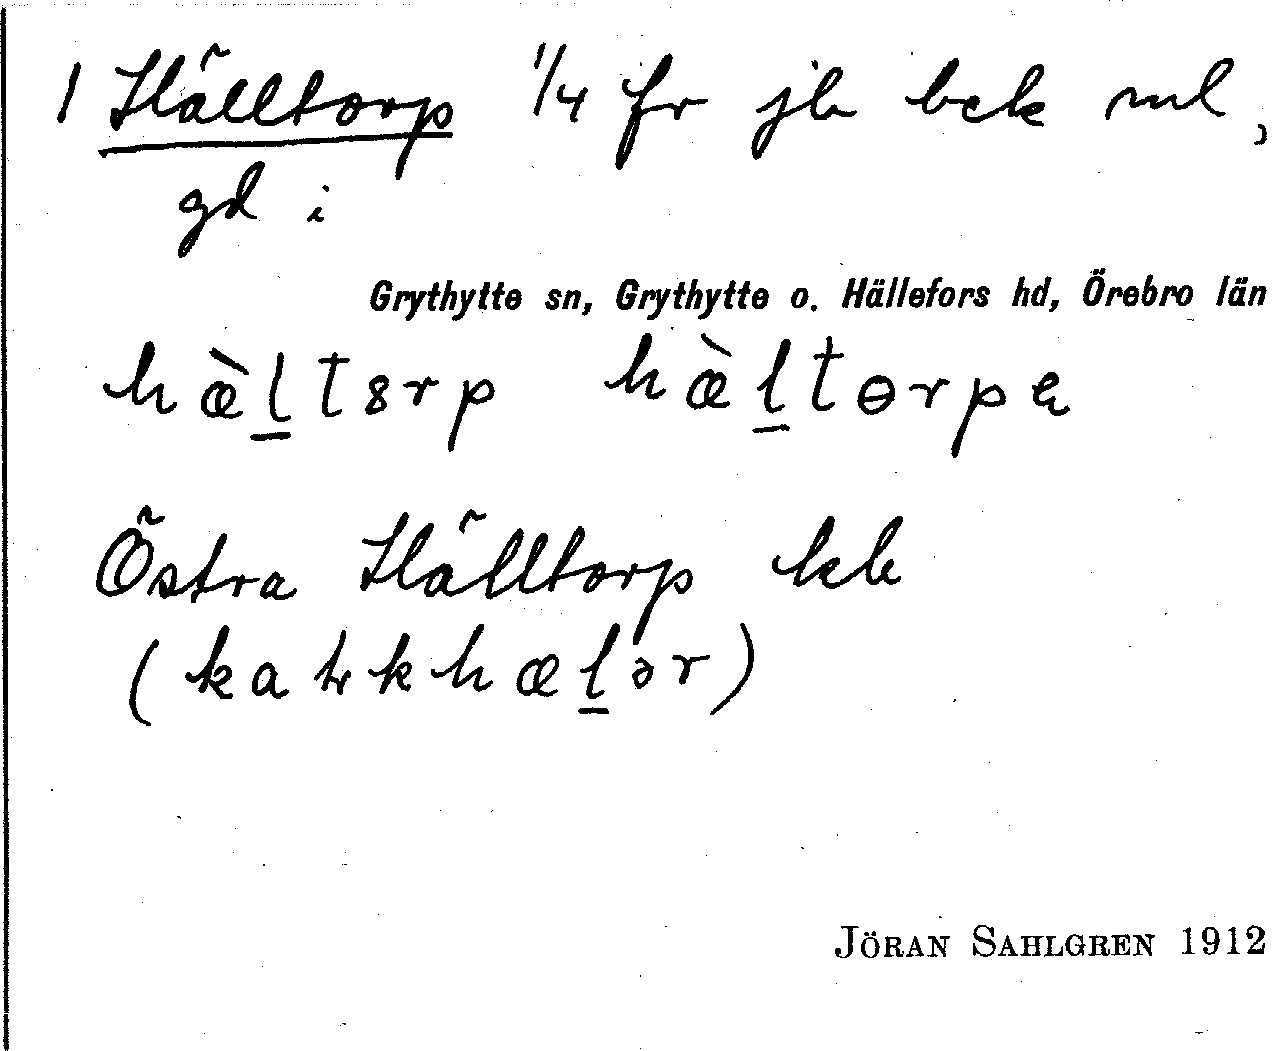 1 Hälltorp 1/4 fr jb bek ml,
gd i
Grythytte sn, Grythytte o. Hällefors hd, Örebro län
hæ̀l̲tɵrp hæ̀l̲tɵrpa
Östra Hälltorp kb
Jöran Sahlgren 1912